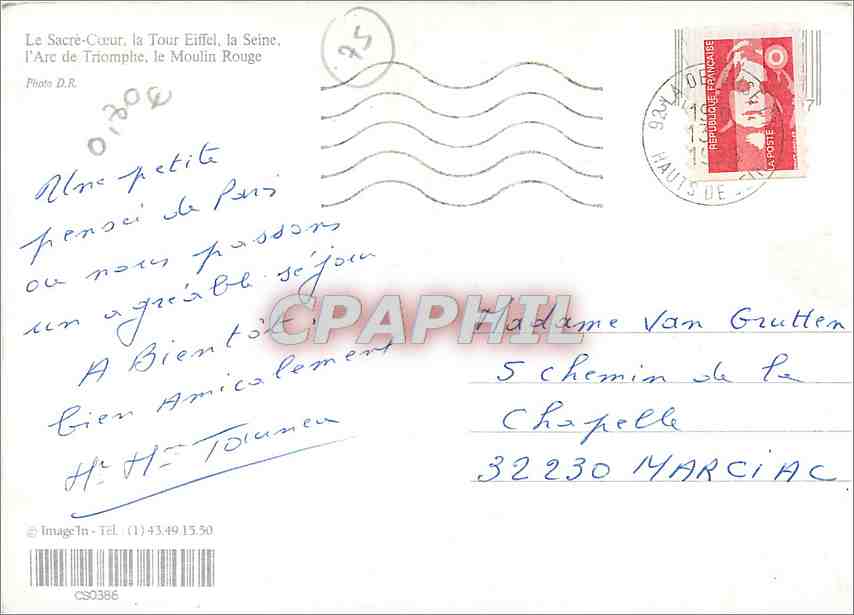 Le Sacré-Cœur, la Tour Eiffel, la Seine,
l'Arc de Triomphe, le Moulin Rouge
Photo D.R.
75
0,70€
Une petite
pensée de Paris
ou nous passons
un agréable séjour
A Bientôt.
bien Amicalement
REPUBLIQUE FRANÇAISE
LA POSTE
92
HAUTS DE
CPAPHIL
Madame Van Grutten
5 chemin de la
Chapelle
32230 MARCIAC
© Image'In - Tél. : (1) 43.49 15.50
CS0386